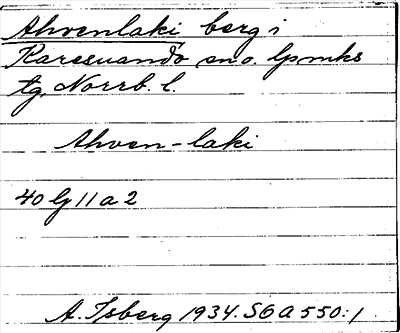 Ahvenlaki berg i
Karesuando sn o. lpmks
tg, Norrb. l.
Ahven-laki
40 lj 11 a 2
A. Isberg 1934. SOA 550:1